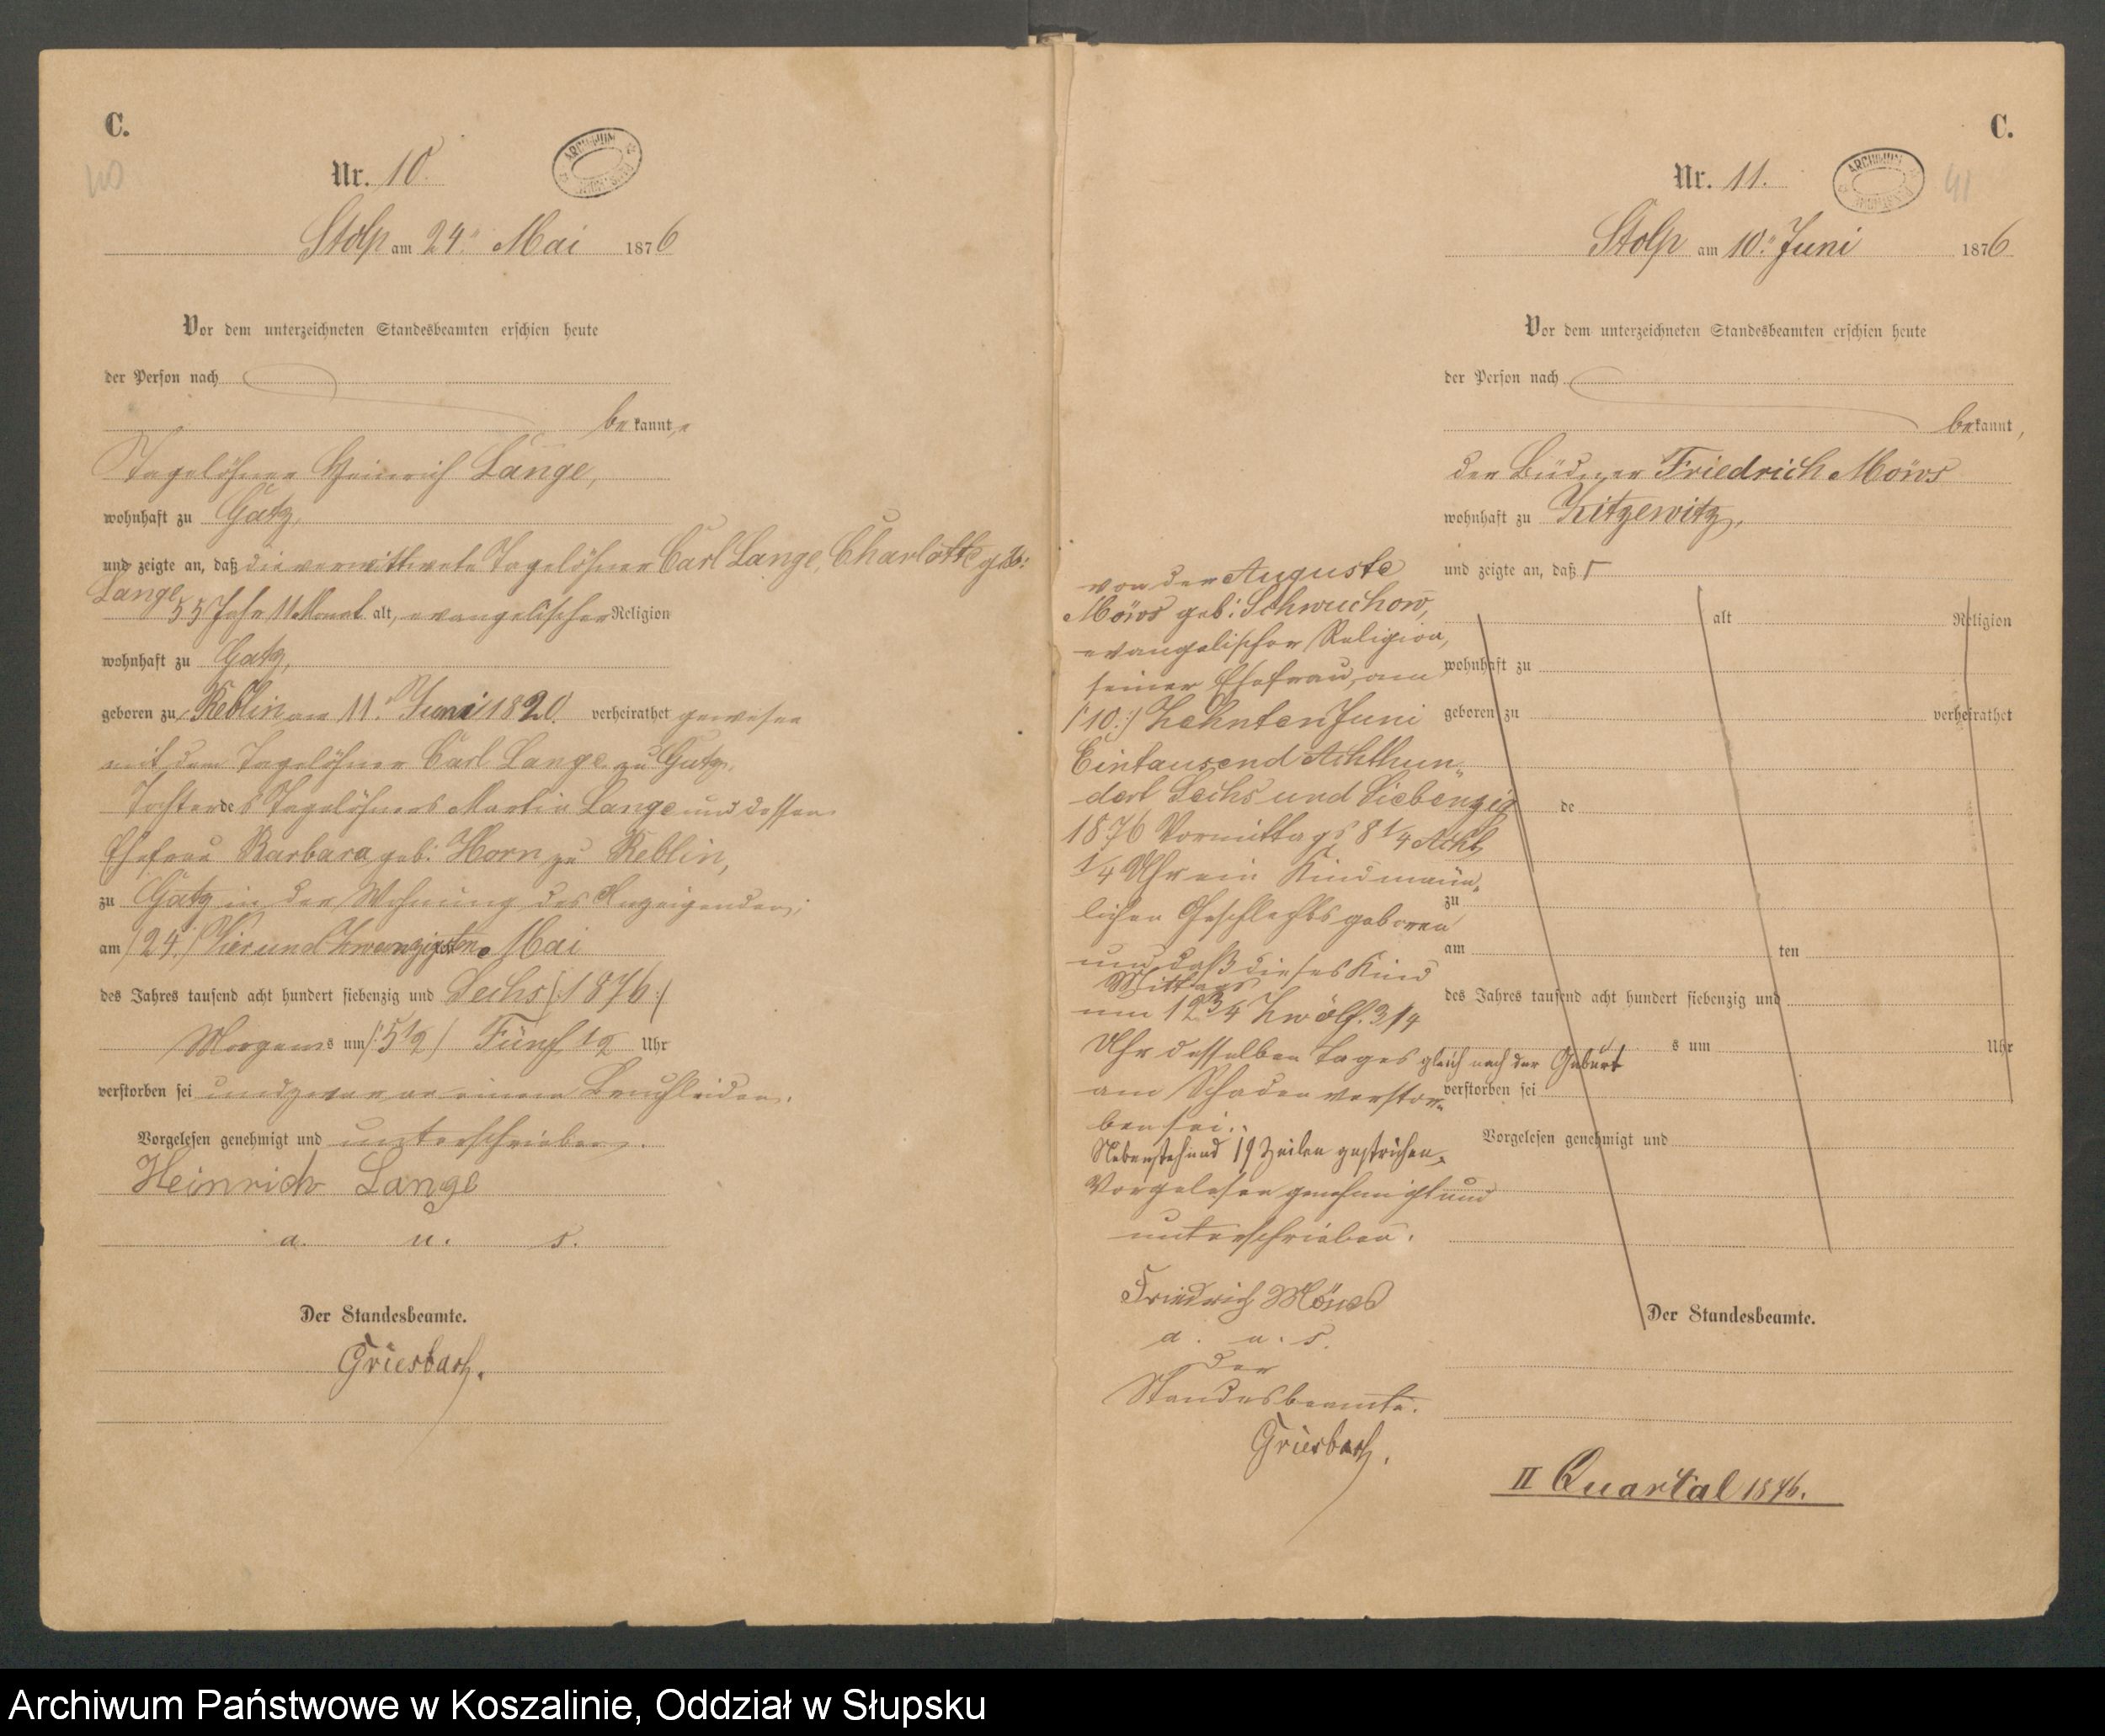 C.
40
Nr. 10.
ARCHIWUM
Stolp am 24. Mai 1876
Vor dem unterzeichneten Standesbeamten erschien heute
der Person nach
bekannt,
Tagelöhner Heinrich Lange,
wohnhaft zu Gatz,
und zeigte an, daß die verwittwete Tagelöhner Carl Lange, Charlotte geb:
Lange,
55 Jahr 11 Monat alt, evangelischer Religion
wohnhaft zu Gatz,
geboren zu Reblin am 11. Juni 1820. verheirathet gewesen
mit dem Tagelöhner Carl Lange zu Gatz,
Tochter des Tagelöhners Martin Lange und dessen
Ehefrau Barbara, geb: Horn zu Reblin,
zu Gatz in der Wohnung des Anzeigenden;
am /24./ Vier und Zwanzigsten Mai
des Jahres tausend acht hundert siebenzig und Sechs /:1876:/
Morgens um /:5 1/2/ Fünf 1/2 Uhr
verstorben sei und zwar an einem Bruchleiden.
Vorgelesen genehmigt und unterschrieben.
Heinrich Lange
a. u. s.
Der Standesbeamte.
Griesbach.
C.
Nr. 11.
ARCHIWUM
41
Stolp am 10. Juni 1876
Vor dem unterzeichneten Standesbeamten erschien heute
der Person nach
bekannt,
der Büdner Friedrich Möws
wohnhaft zu Zitzewitz,
und zeigte an, daß
von der Auguste
Möws geb: Schwuchow,
evangelischer Religion,
seiner Ehefrau, am
/:10:/ Zehnten Juni
Eintausend Achthun-
dert Sechs und Siebenzig
1876 Vormittags 8 1/4 Acht
1/4 Uhr ein Kind männ-
lichen Geschlechts geboren
und daß dieses Kind
Mittags
um 12 3/4 Zwölf 3/4
Uhr desselben Tages gleich nach der Geburt
am Schaden verstor-
ben sei.
Nebenstehend 19 Zeilen gestrichen.
Vorgelesen genehmigt und
unterschrieben.
Friedrich Möws
a. u. s.
Der
Standesbeamte.
Griesbach.
alt Religion
wohnhaft zu
geboren zu verheirathet
de
zu
am ten
des Jahres tausend acht hundert siebenzig und
s um Uhr
verstorben sei
Vorgelesen genehmigt und
Der Standesbeamte.
II Quartal 1876.
Archiwum Państwowe w Koszalinie, Oddział w Słupsku